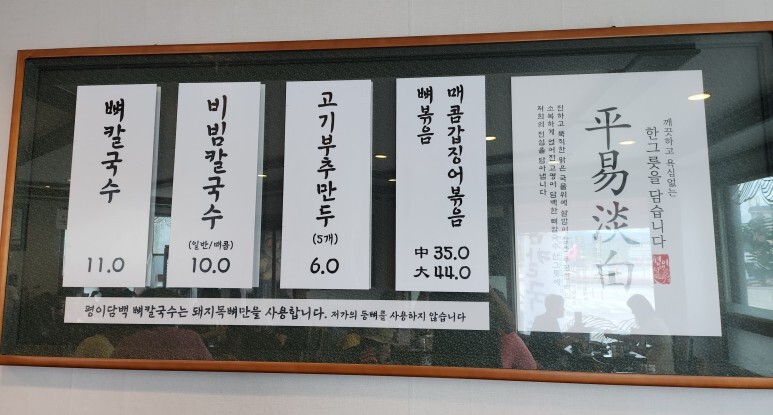 뼈칼국수
11.0
비빔칼국수
(일반/매콤)
10.0
고기부추만두
(5개)
6.0
매콤갑징어볶음
뼈볶음
中 35.0
大 44.0
깨끗하고 욕심없는
한그릇을 담습니다
平易淡白
진하고 묵직한 맑은 국물위에
소복하게 얹어진 고명이 담백한 뼈칼국수
저희의 진심을 담아냅니다
평이담백 뼈칼국수는 돼지목뼈만을 사용합니다. 저가의 등뼈를 사용하지 않습니다